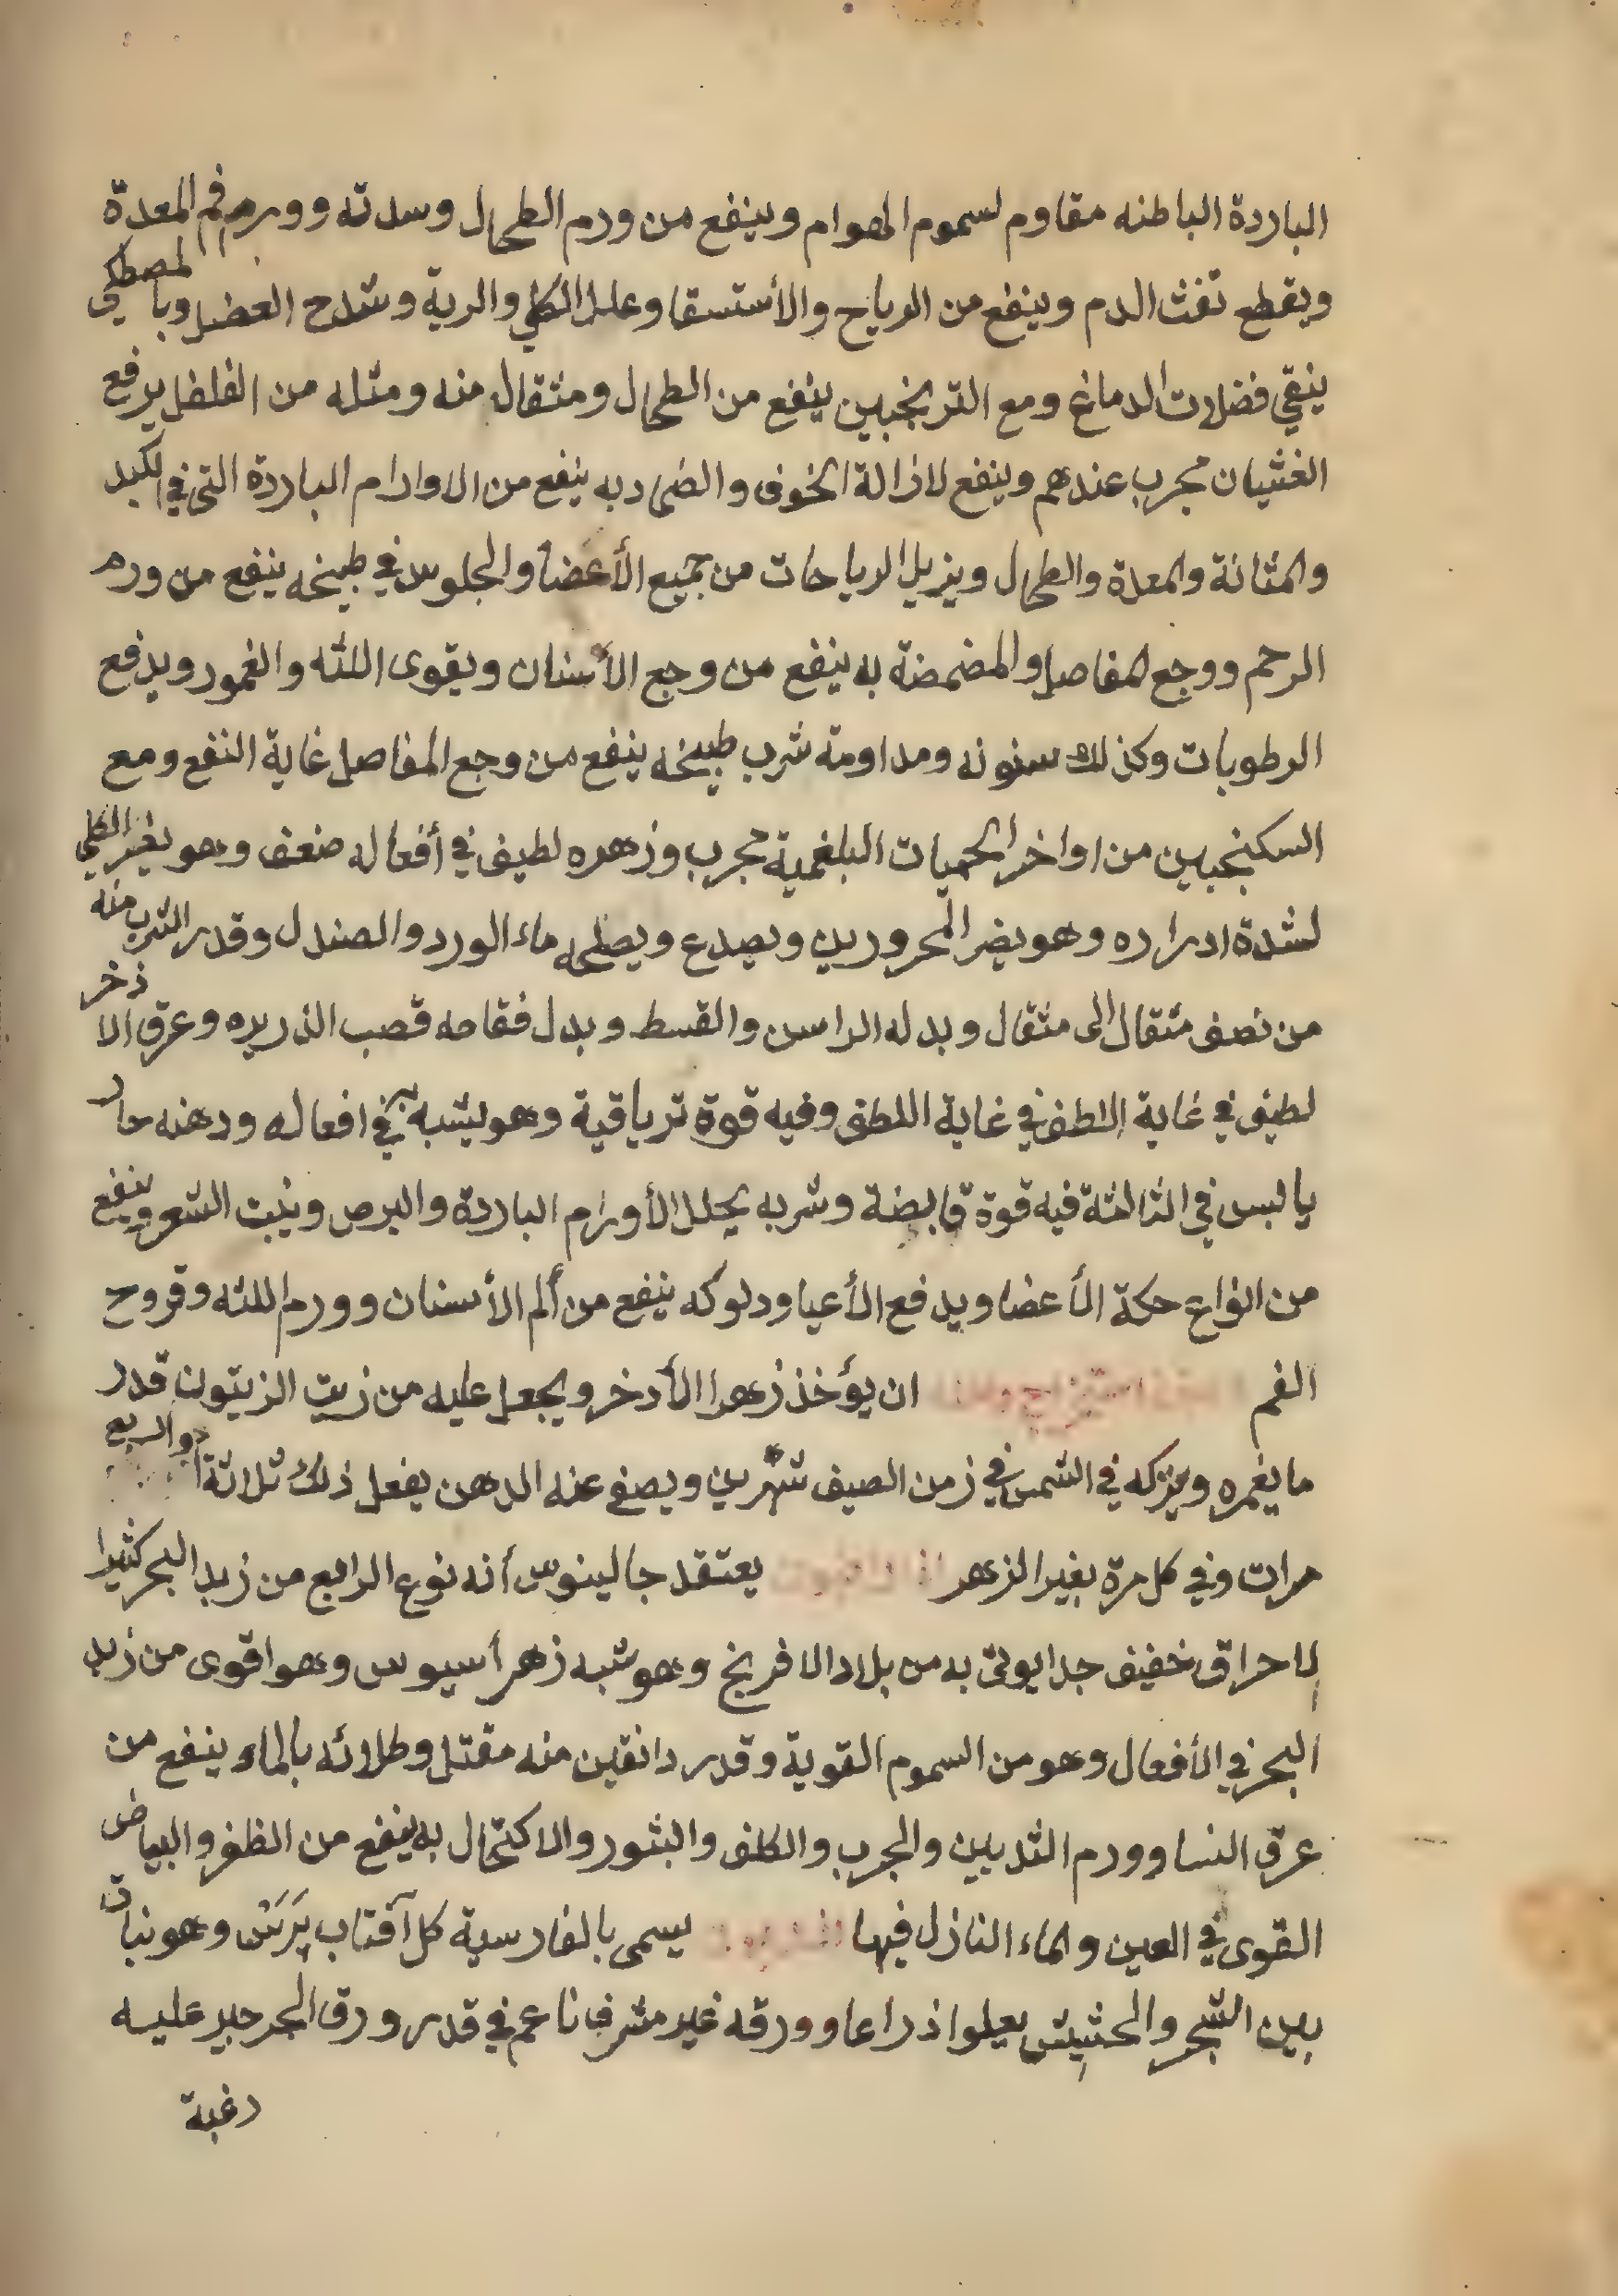 الباردة الباطنه مقاوم لسموم الهوام وينفع من ورم الطحال وسدته وورم فم المعدة
ويقطع نفث الدم وينفع من الرياح والأستسقا وعلل الكلي والرية وشدح العضل وبالمصطكي
ينقي فضلات الدماغ ومع الترنجبين ينفع من الطحال ومثقال منه ومثله من الفلفل يرفع
الغثيان مجرب عندهم وينفع لازالة الخوف والضماد به ينفع من الاوارام الباردة التي في الكبد
والمثانة والمعدة والطحال ويزيل الرياحات من جميع الأعضا والجلوس في طبيخه ينفع من ورم
الرحم ووجع المفاصل والمضمضة به ينفع من وجع الأسنان ويقوى اللثه والغمور ويدفع
الرطوبات وكذلك سنونه ومداومة شرب طبيخه ينفع من وجع المفاصل غاية النفع ومع
السكنجبين من اواخر الحميات البلغمية مجرب وزهره لطيف في أفعاله ضعف وهو يغير الكلي
لشدة ادراره وهو يضر المحرورين ويصدع ويصلحه ماء الورد والصندل وقدر الشرب منه
من نصف مثقال الى مثقال وبدله الراسن والقسط وبدل فقاحه قصب الذريره وعرق الاذخر
لطيف في غاية اللطف في غاية اللطف وفيه قوة ترياقية وهو يشبه في افعاله ودهنه حار
يابس في الثالثة فيه قوة قابضة وشربه يحلل الأورام الباردة والبرص وينبت الشعر وينفع
من انواع حكة الأعضا ويدفع الأعيا ودلوكه ينفع من ألم الأسنان وورم اللثه وقروح
الفم ان يؤخذ زهر الأدخر ويجعل عليه من زيت الزيتون قدر
ما يغمره ويتركه في الشمس في زمن الصيف شهرين ويصفى عنه الدهن يفعل ذلك ثلاثة او اربع
مرات وفي كل مرة بغير الزهر يعتقد جالينوس أنه نوع الرابع من زبد البحر كثير
لاحراق خفيف جدا يوتى به من بلاد الافرنج وهو شبه زهر أسيوس وهو اقوى من زبد
البحر في الأفعال وهو من السموم القوية وقدر دانقين منه مقتل وطلائه بالماء ينفع من
عرق النسا وورم الثديين والجرب والكلف والبثور والاكتحال به ينفع من الظفر والبياض
القوى في العين والماء النازل فيها يسمى بالفارسية كل آفتاب پرَسَت وهو نبات
بين الشجر والحشيش يعلوا ذراعا وورقه غير مشرف ناعم في قدر ورق الجرجير عليه
دغبة